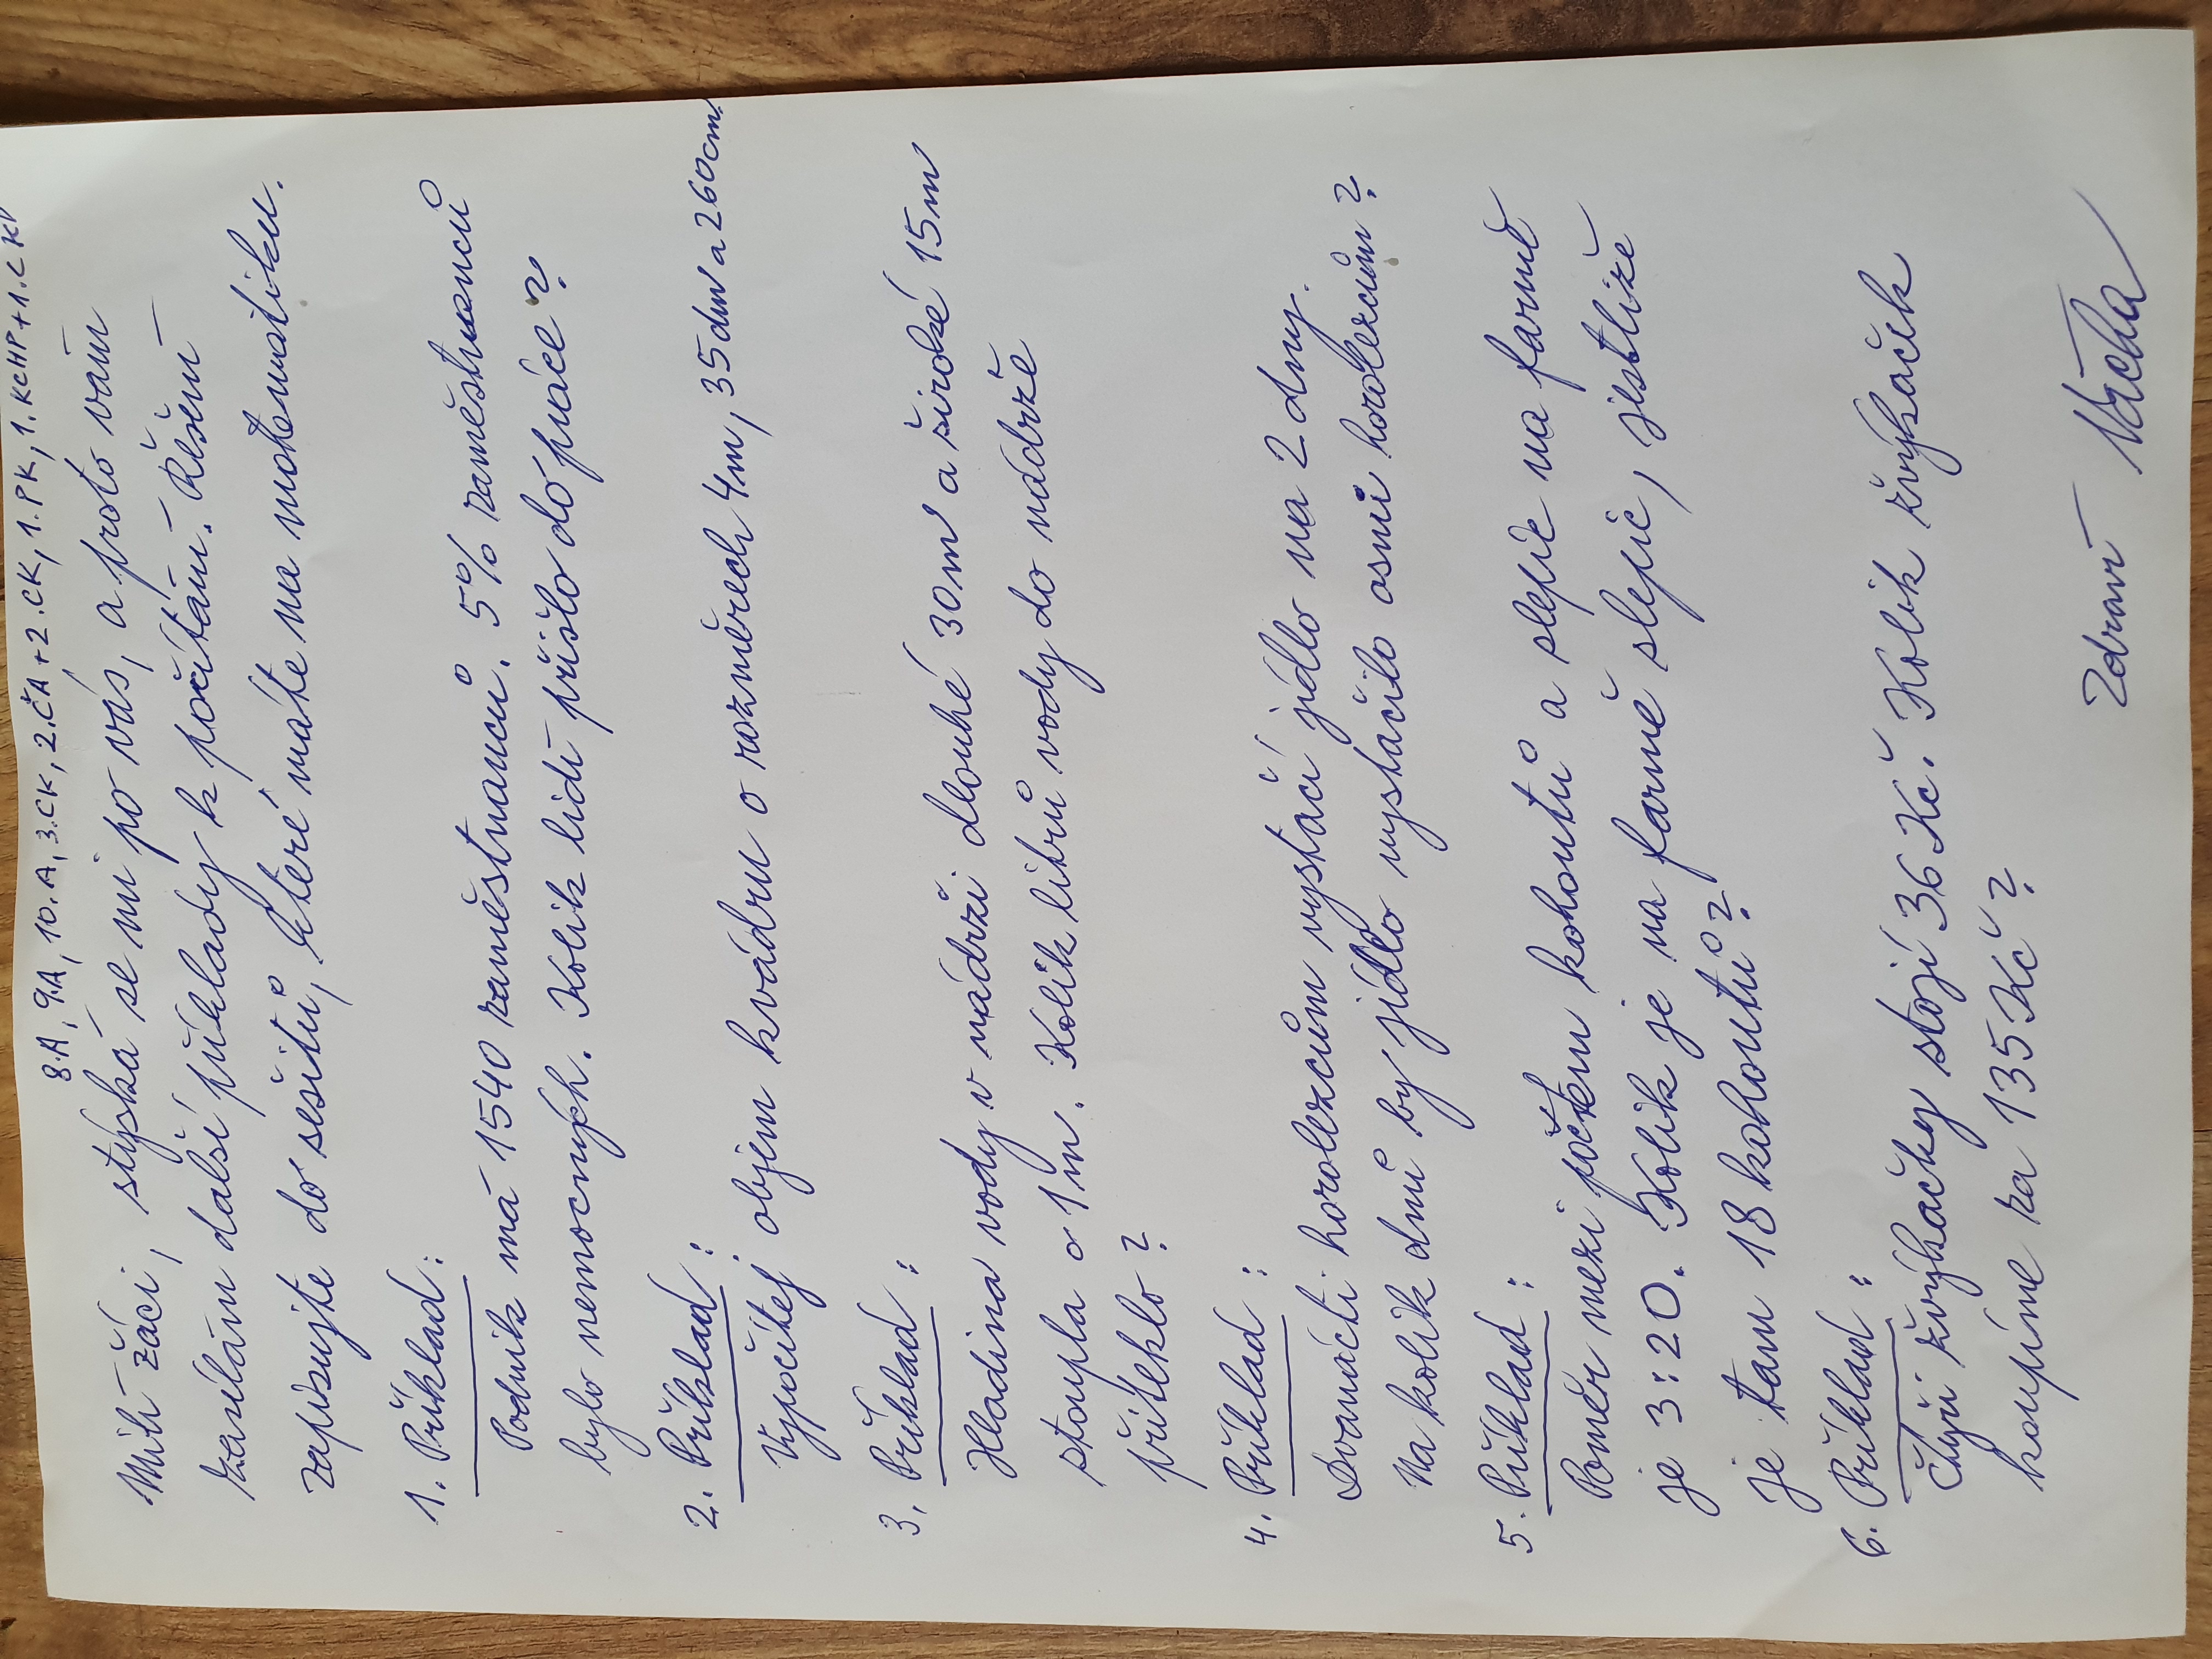 8.A, 9.A, 10.A, 3.CK, 2.ČA+2.CK, 1.PK, 1.KCHP+1.C KV
Milí žáci, stýská se mi po vás, a proto vám
zasílám další příklady k počítání. Řešení
zapisujte do sešitů, které máte na matematiku.
1. Příklad:
Podnik má 1540 zaměstnanců. 5% zaměstnanců
bylo nemocných. Kolik lidí přišlo do práce?
2. Příklad:
Vypočítej objem kvádru o rozměrech 4m, 35dm a 260cm.
3. Příklad:
Hladina vody v nádrži dlouhé 30m a široké 15m
stoupla o 1m. Kolik litrů vody do nádrže
přiteklo?
4. Příklad:
Dvanácti horolezcům vystačí jídlo na 2 dny.
Na kolik dnů by jídlo vystačilo osmi horolezcům?
5. Příklad:
Poměr mezi počtem kohoutů a slepic na farmě
je 3:20. Kolik je na farmě slepic, jestliže
je tam 18 kohoutů?
6. Příklad:
Čtyři žvýkačky stojí 36Kč. Kolik žvýkaček
koupíme za 135Kč?
Zdraví Vácha